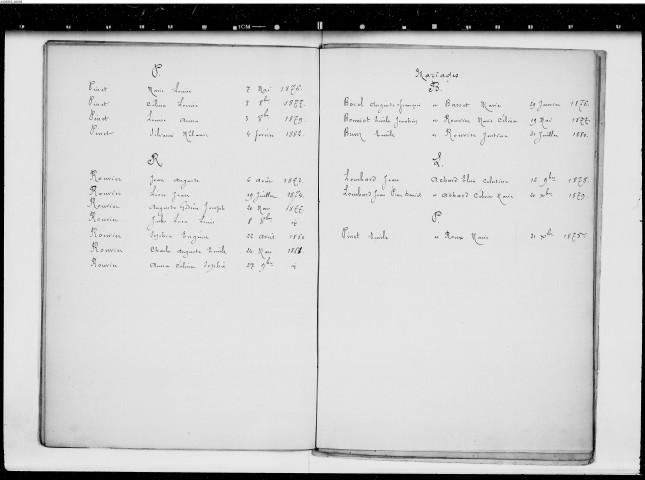 P.
Pinet Marie Louise 7 Mai 1876.
Pinet Célina Louise 8 8bre 1877.
Pinet Louise Anna 3 8bre 1879
Pinet Silvanie Mélanie 4 février 1882.
R.
Rouvier Jean Auguste 6 Août 1873.
Rouvier Léon Jean 19 Juillet 1874.
Rouvier Auguste Gédéon Joseph 20 Mars 1877.
Rouvier Jules Léon Louis 8 8bre id
Rouvier Sophie Eugénie 22 Avril 1880
Rouvier Charles Auguste Emile 24 Mars 1881.
Rouvier Anna Célina Sophie 27 9bre id
Mariages
B.
Borel Auguste François et Basset Marie 29 Janvier 1876.
Bonniot Emile Jean et Rouvier Marie Célina 19 Mai 1877.
Brun Emile et Rouvier Justine 31 Juillet 1880.
L.
Lombard Jean Achard Elise Célestine 16 9bre 1878.
Lombard Jean Pierre et Achard Célina Marie 20 xbre 1879.
P.
Pinet Emile et Roux Marie 21 xbre 1875